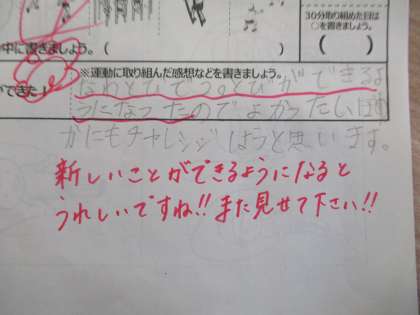 30分取り組めた日は
○を書きましょう。
中に書きましょう。（　　　）
（　　）
※運動に取り組んだ感想などを書きましょう。
ができた！
なわとびで
とびができるよ
うになったのでよかったし、ほ
かにもチャレンジしようと思います。
新しいことができるようになると
うれしいですね!!また見せて下さい!!